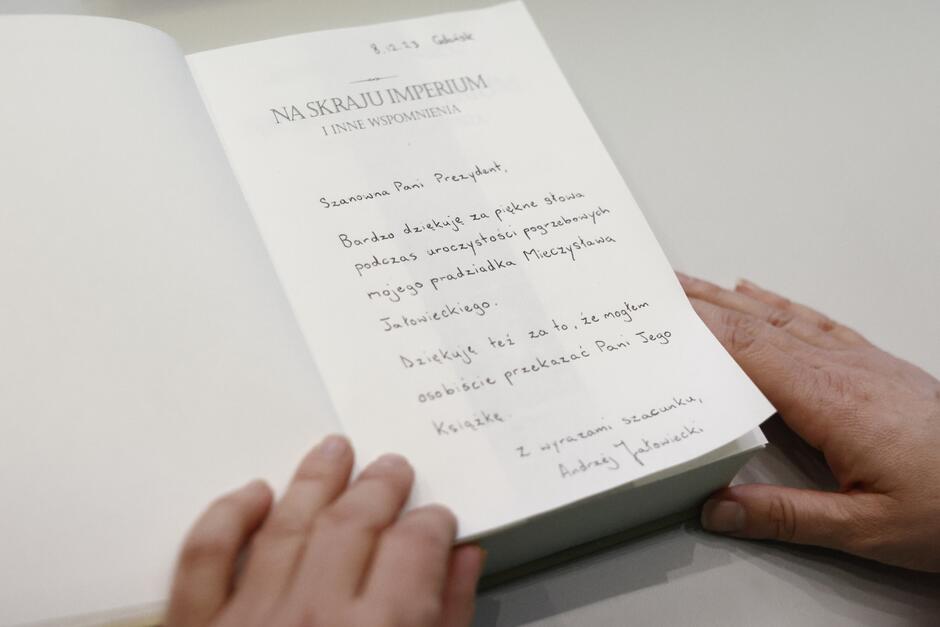 8.12.23 Gdańsk
NA SKRAJU IMPERIUM
I INNE WSPOMNIENIA
Szanowna Pani Prezydent,
Bardzo dziękuję za piękne słowa
podczas uroczystości pogrzebowych
mojego pradziadka Mieczysława
Jałowieckiego.
Dziękuję też za to, że mogłem
osobiście przekazać Pani Jego
Książkę.
Z wyrazami szacunku,
Andrzej Jałowiecki